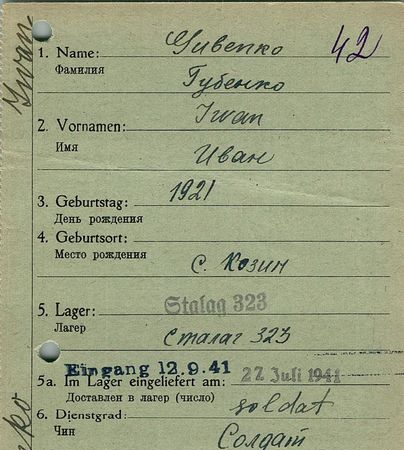 Iwan
42
1. Name: Gubenko
Фамилия Губенко
2. Vornamen: Iwan
Имя Иван
3. Geburtstag: 1921
День рождения
4. Geburtsort:
Место рождения
с. Козин
5. Lager: Stalag 323
Лагерь Сталаг 323
Eingang 12.9.41
5a. Im Lager eingeliefert am: 22 Juli 1941
Доставлен в лагерь (число)
6. Dienstgrad: soldat
Чин Солдат
ko